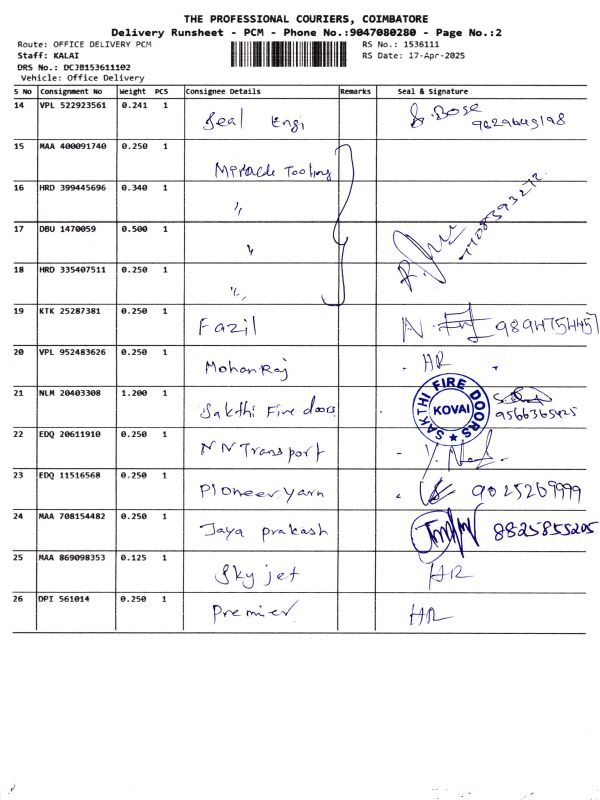 THE PROFESSIONAL COURIERS, COIMBATORE
Delivery Runsheet - PCM - Phone No.:9047080280 - Page No.:2
Route: OFFICE DELIVERY PCM RS No.: 1536111
Staff: KALAI RS Date: 17-Apr-2025
DRS No.: DCJB153611102
Vehicle: Office Delivery
S No Consignment No Weight PCS Consignee Details Remarks Seal & Signature
14 VPL 522923561 0.241 1 Seal Engi S. Bose
15 MAA 400091740 0.250 1 Miracle Tooling
16 HRD 399445696 0.340 1 "
17 DBU 1470059 0.500 1 "
18 HRD 335407511 0.250 1 "
19 KTK 25287381 0.250 1 Fazil
20 VPL 952483626 0.250 1 MohanRaj HR
21 NLM 20403308 1.200 1 Sakthi Fire doors SAKTHI FIRE DOORS KOVAI 9566365425
22 EDQ 20611910 0.250 1 NN Transport
23 EDQ 11516568 0.250 1 Pioneer yarn 9025269999
24 MAA 708154482 0.250 1 Jaya prakash 8825855205
25 MAA 869098353 0.125 1 Sky jet HR
26 DPI 561014 0.250 1 Premier HR